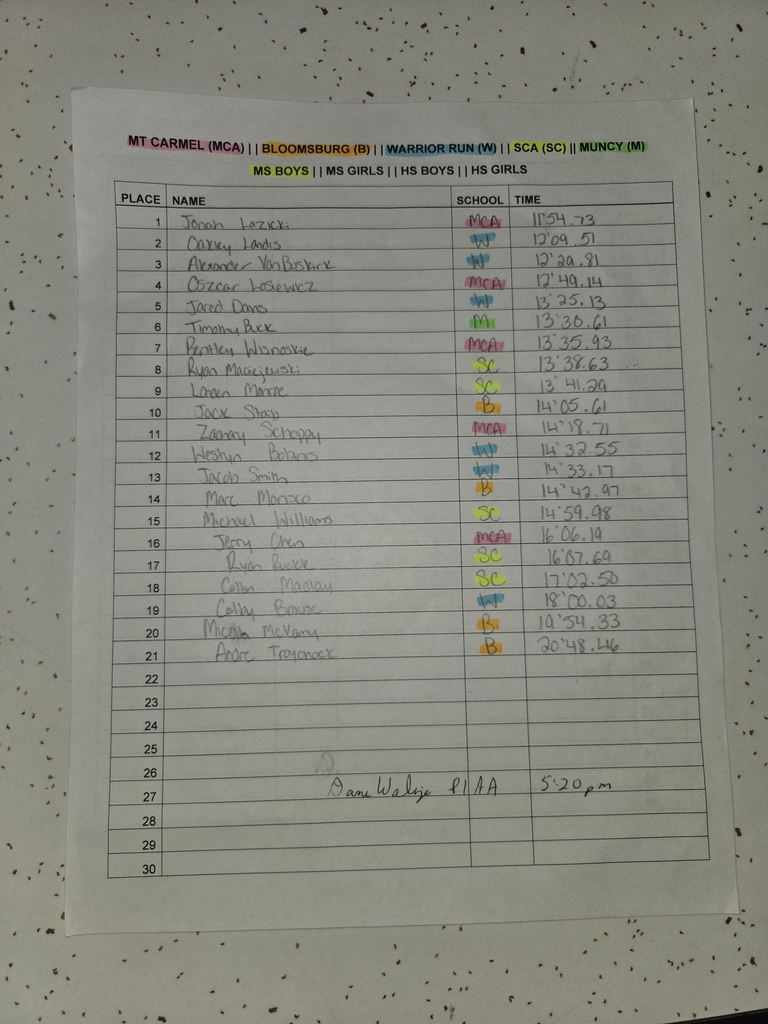 MT CARMEL (MCA) || BLOOMSBURG (B) || WARRIOR RUN (W) || SCA (SC) || MUNCY (M)
MS BOYS || MS GIRLS || HS BOYS || HS GIRLS
PLACE NAME SCHOOL TIME
1 Jonah Lazicki MCA 11'54.73
2 Oakley Landis W 12'09.51
3 Alexander VanBuskirk W 12'29.81
4 Oszcar Losiewicz MCA 12'49.14
5 Jared Davis W 13'25.13
6 Timothy Buck M 13'30.61
7 Bentley Wisnoskie MCA 13'35.93
8 Ryan Maciejewski SC 13'38.63
9 Landen Monroe SC 13'41.29
10 Jack Staib B 14'05.61
11 Zachary Schoppy MCA 14'18.71
12 Westyn W 14'32.55
13 Jacob Smith W 14'33.17
14 Marc Monaco B 14'42.97
15 Michael Williams SC 14'59.98
16 Jerry Chen MCA 16'06.19
17 Ryan SC 16'07.69
18 Collin Maclay SC 17'02.50
19 Colby W 18'00.03
20 Micah McVamy B 19'54.33
21 Andre B 20'48.46
22
23
24
25
26
27 Dane PIAA 5:20pm
28
29
30